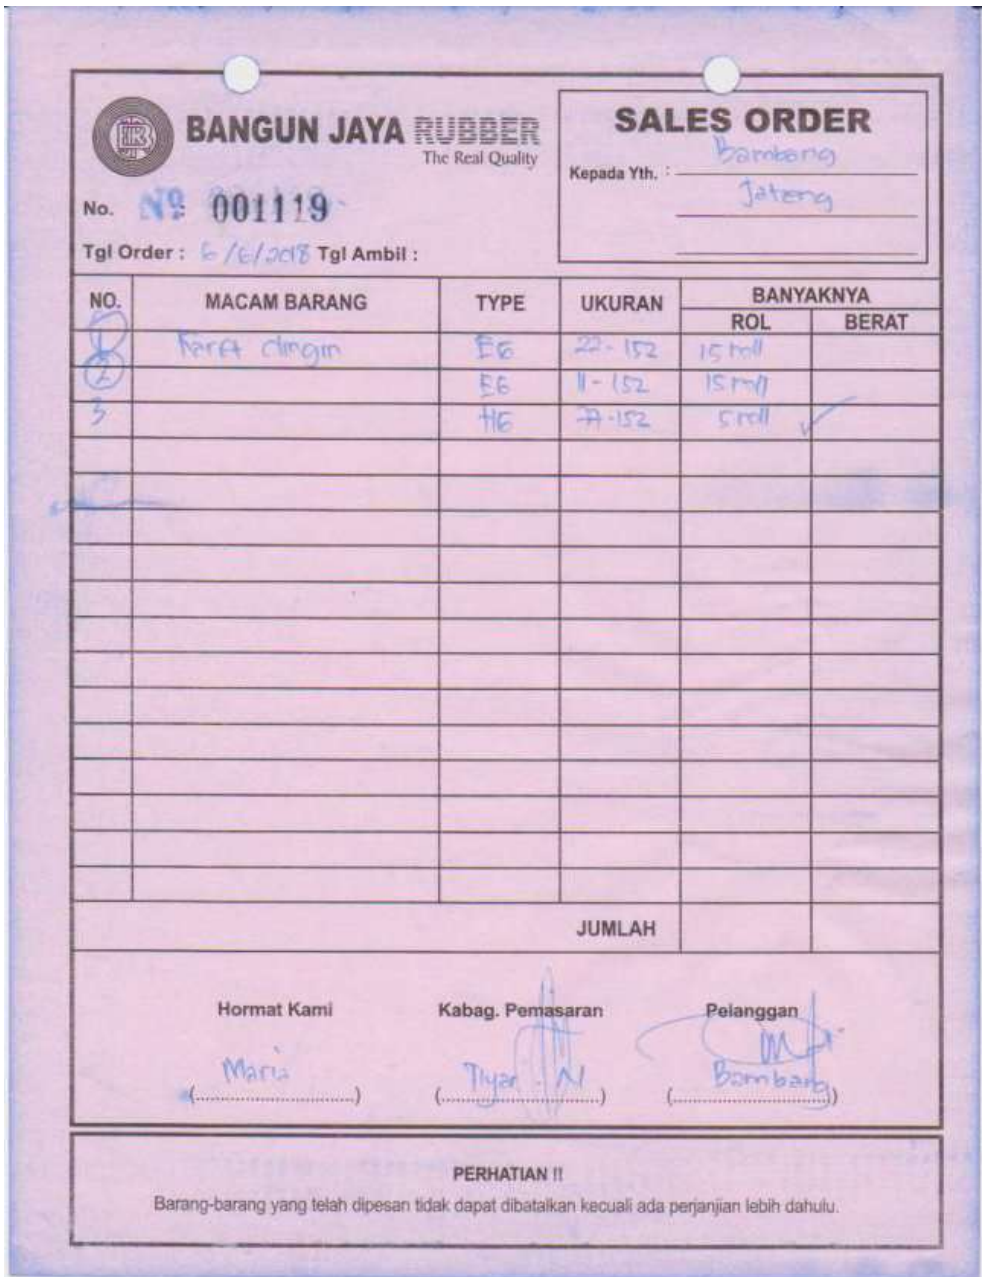 BANGUN JAYA RUBBER
The Real Quality
SALES ORDER
Kepada Yth. : Bambang
Jateng
No. Nº 001119
Tgl Order : 6/6/2018 Tgl Ambil :
NO. MACAM BARANG TYPE UKURAN BANYAKNYA
ROL BERAT
1 Karet dingin E6 22-152 15 roll
2 E6 11-152 15 roll
3 H6 -152 5 roll
JUMLAH
Hormat Kami Kabag. Pemasaran Pelanggan
Maria Tiyar . N Bambang
(............................) (............................) (............................)
PERHATIAN !!
Barang-barang yang telah dipesan tidak dapat dibatalkan kecuali ada perjanjian lebih dahulu.